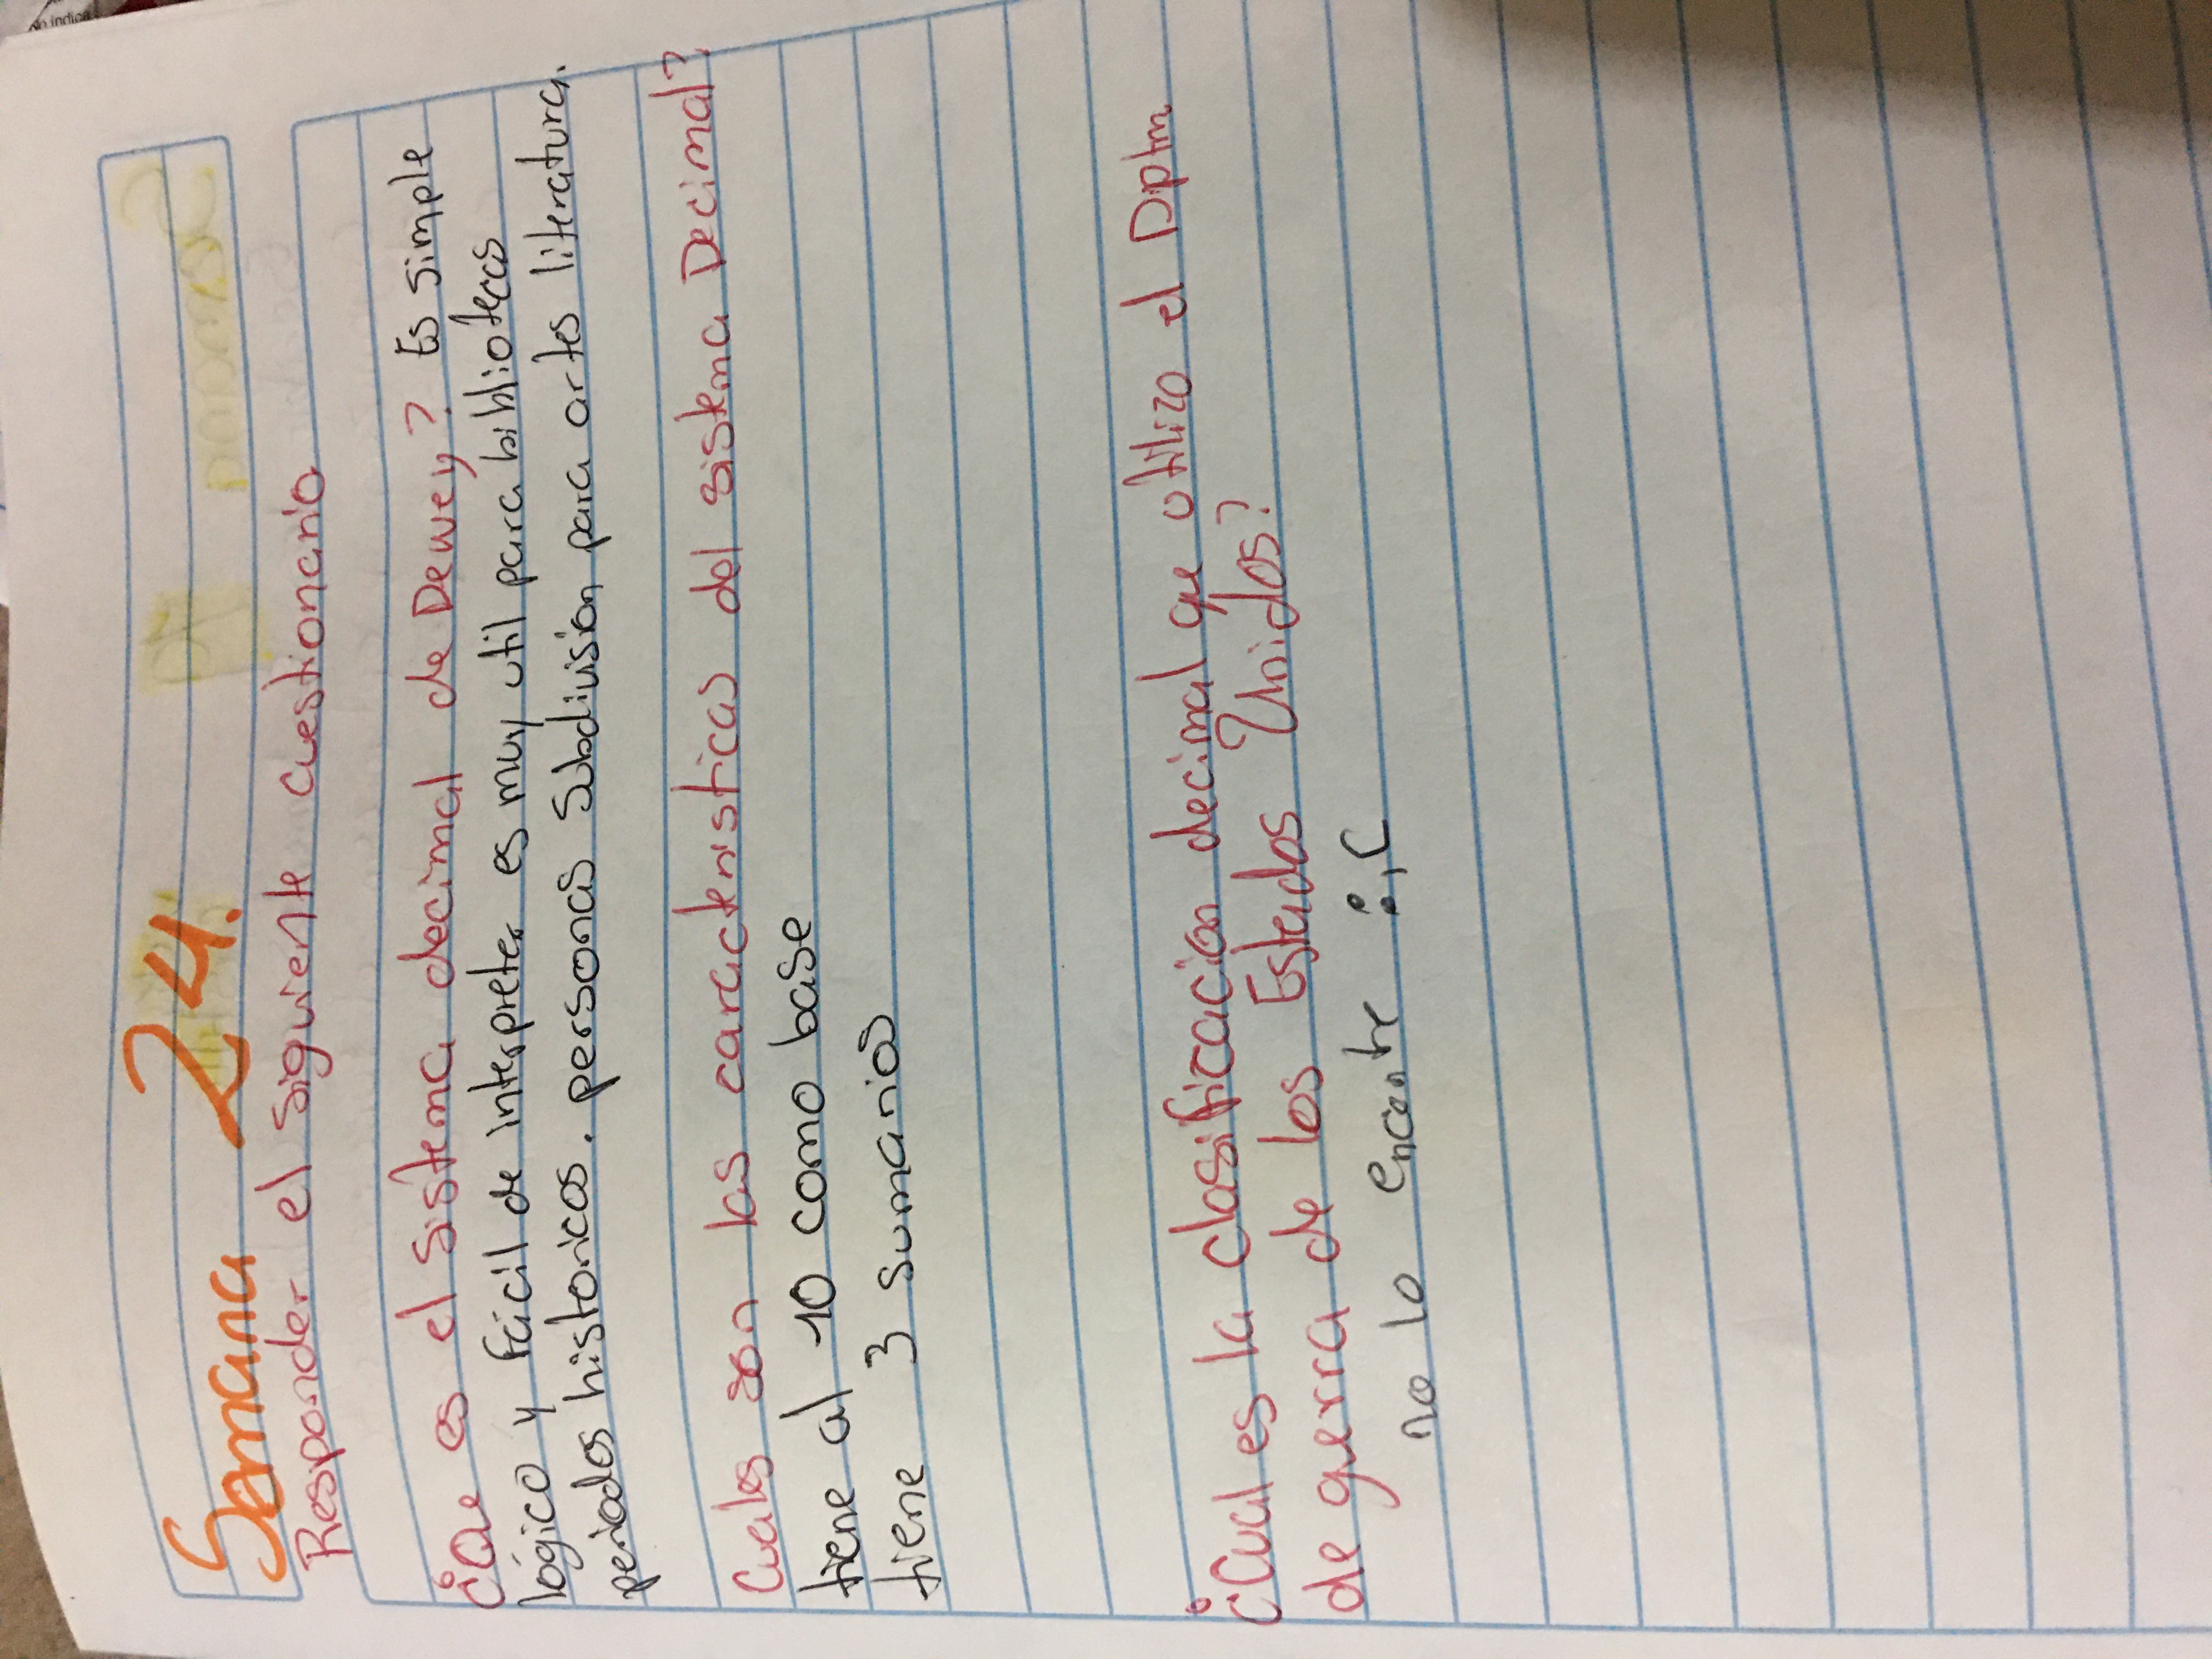 Semana 24.
Responder el siguiente cuestionario
¿Que es el sistema decimal de Dewey? Es simple
lógico y fácil de interpreter es muy util para bibliotecas
periodos historicos. personas subdivisión para artes literatura.
Cuales son las caracteristicas del sistema Decimal?
tiene al 10 como base
tiene 3 sumarios
¿Cual es la clasificacion decimal que utilizo el Dptm
de guerra de los Estados Unidos?
no lo encontre :,C